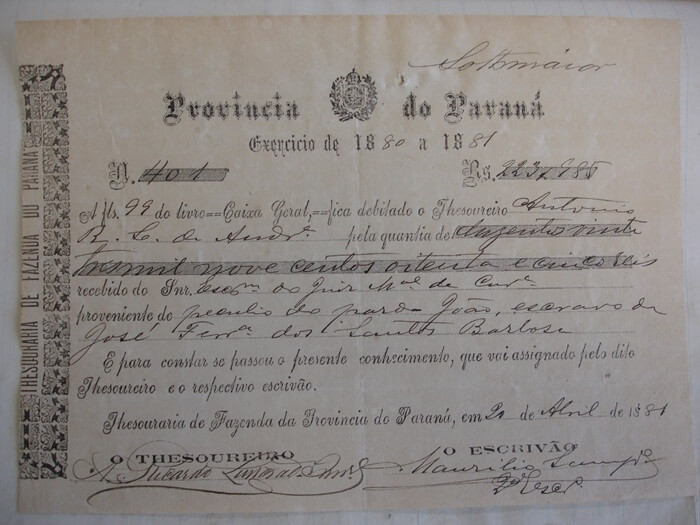 Sottomaior
Provincia do Paraná
Exercicio de 1880 a 1881
N. 401 Rs. 223$985
A fls. 99 do livro==Caixa Geral,==fica debitado o Thesoureiro Antonio
R. L. de Andr.ª pela quantia de duzentos vinte
tres mil nove centos oitenta e cinco reis
recebido do Snr. escr.m do Juiz M.al de Cur.ª
proveniente do peculio do pardo João, escravo de
José Ferr.ª dos Santos Barbosa
E para constar se passou o presente conhecimento, que vai assignado pelo dito
Thesoureiro e o respectivo escrivão.
Thesouraria de Fazenda da Provincia do Paraná, em 20 de Abril de 1881
O THESOUREIRO O ESCRIVÃO
A. Ricardo
Maurilio
2º Escr.
THESOURARIA DE FAZENDA DO PARANÁ